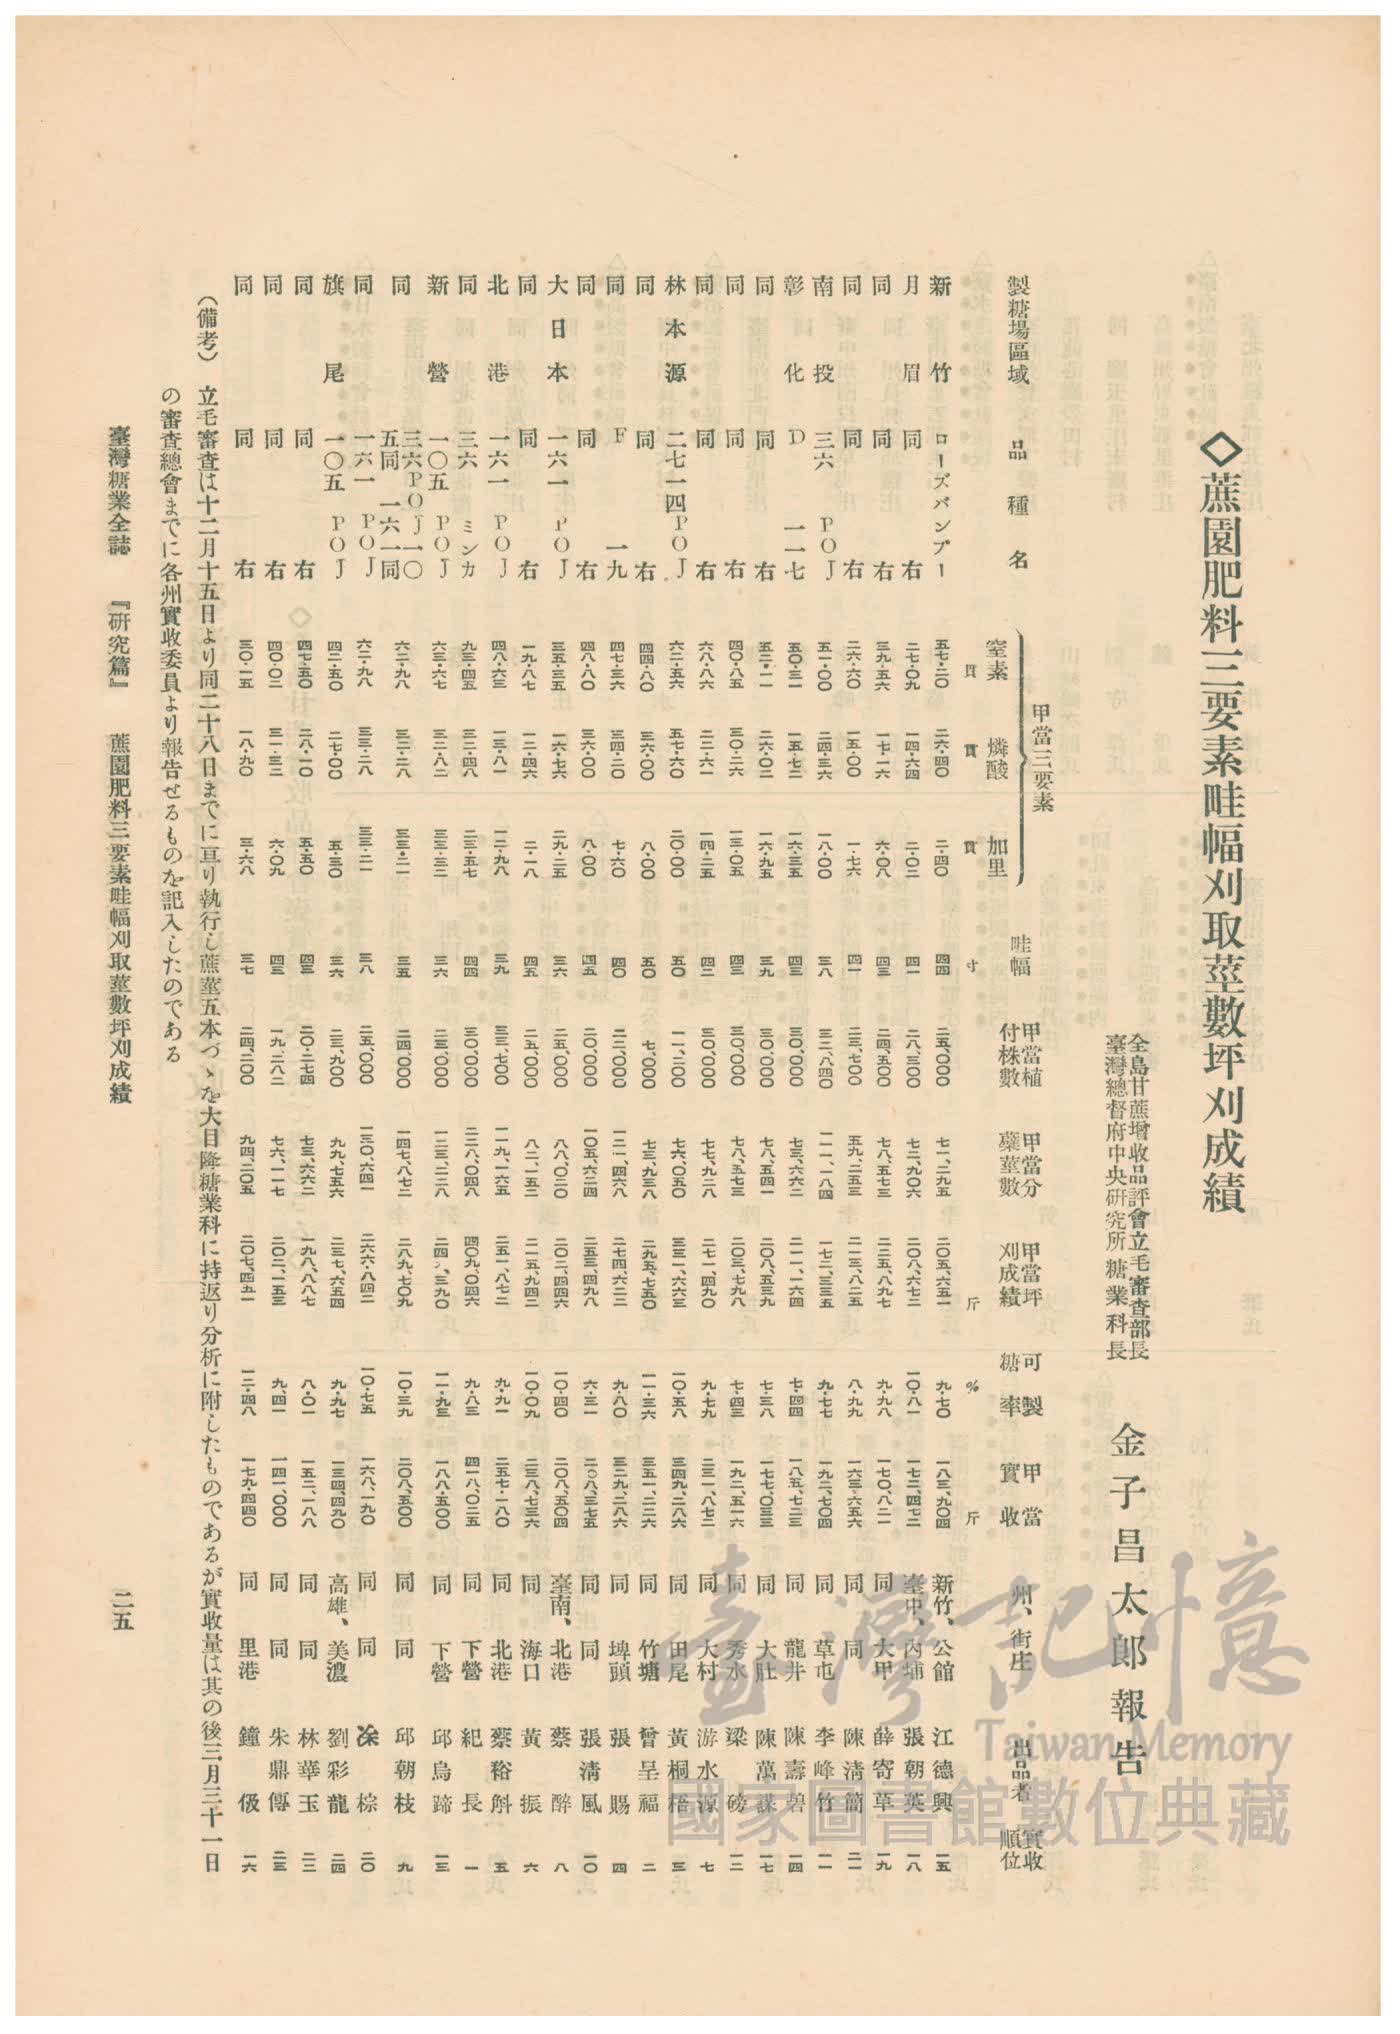 ◇蔗園肥料三要素畦幅刈取莖數坪刈成績
全島甘蔗增收品評會立毛審查部長
臺灣總督府中央研究所糖業科長
金子昌太郎報告
製糖場區域 品種名 甲當三要素 窒素 燐酸 加里 畦幅 甲當植付株數 甲當分蘖莖數 甲當坪刈成績 可製糖率 甲當實收 州、街庄 出品者 實收順位
貫 貫 貫 寸 斤 % 斤
新竹 ローズバンブー 五七・二〇 二六・四〇 二・四〇 四四 二五、〇〇〇 七一、二九五 二〇五、六五一 九・七〇 一八三、九〇四 新竹、公館 江德興 一五
月眉 同右 二七・〇九 一四・六四 二・〇二 四一 二八、三〇〇 七二、九〇六 二〇八、六七二 一〇・八一 一七二、四七二 臺中、內埔 張朝英 一八
同 同右 三九・五六 一七・一六 六・〇八 四三 二四、五〇〇 七八、五七三 二三五、八九七 九・九八 一七〇、八二一 同 大甲 薛寄草 一九
同 同右 二六・六〇 一五・〇〇 一・七六 四一 二三、七〇〇 五九、二五三 二一三、八二五 八・九九 一六三、六五六 同 同 陳清簡 二一
南投 三六POJ 五一・〇〇 二四・三六 一八・〇〇 三八 三二、八四〇 一一一、一八四 一七二、三三五 九・七七 一九二、七〇四 同 草屯 李峰竹 一一
彰化 D一一七 五〇・三一 一五・七二 一六・三五 四三 三〇、〇〇〇 七三、六六二 二一一、一六四 七・四四 一八五、七二三 同 龍井 陳壽碧 一四
同 同右 五二・一一 二六・〇二 一六・九五 三九 三〇、〇〇〇 七八、五四一 二〇八、五三九 七・三八 一七七、〇三三 同 大肚 陳萬謀 一七
同 同右 四〇・八五 三〇・二六 一三・〇五 四三 三〇、〇〇〇 七八、五七三 二〇三、七九八 七・四三 一九二、五一六 同 秀水 梁磅 一二
同 同右 六八・八六 二二・六一 一四・二五 四二 三〇、〇〇〇 七七、九二八 二七一、四九〇 九・七九 二三一、八七二 同 大村 游水源 七
林本源 二七一四POJ 六二・五六 五七・六〇 二〇・〇〇 五〇 一一、二〇〇 七六、〇五〇 三三一、六六三 一〇・五八 三四九、二八六 同 田尾 黃桐梧 三
同 同右 四四・八〇 三六・〇〇 八・〇〇 五〇 七、〇〇〇 七三、九三八 二九五、七五〇 一一・三六 三五一、二二六 同 竹塘 曾呈福 二
同 F一九 四七・三六 三四・二〇 七・六〇 四〇 二二、〇〇〇 一二一、四六八 二七四、六二二 九・八〇 三二九、二八六 同 埤頭 張賜 四
同 同右 四八・八〇 三六・〇〇 八・〇〇 四五 二〇、〇〇〇 一〇五、六二四 二五三、四九八 六・三一 二〇八、三七五 同 同 張清風 一〇
大日本 一六一POJ 三五・三五 一六・七六 二九・二五 三六 二五、〇〇〇 八八、〇二〇 二〇二、四四六 一〇・四〇 二〇八、五〇四 臺南、北港 蔡醉 八
同 同右 一九・八七 一二・四六 二・一八 四五 二五、〇〇〇 八二、一五二 二一五、九四二 一〇・〇九 二三八、七三六 同 海口 黃振 六
北港 一六一POJ 四八・六三 一三・八一 一二・九八 三九 三三、七〇〇 一一九、一六五 二五一、八七二 九・九一 二五七、一八〇 同 北港 蔡裕斛 五
同 三六ミンカ 九三・四五 三二・四八 二三・五七 四四 三〇、〇〇〇 二二八、〇四八 四〇九、〇四六 九・八三 四一八、〇二五 同 下營 紀長 一
新營 一〇五POJ 六三・六七 三二・八二 三三・三二 三六 二三、〇〇〇 一二三、二二八 二四一、三九〇 一一・九三 一八八、五〇〇 同 下營 邱烏蹄 一三
同 三六POJ一〇五同 一六一同 六二・九八 三二・二八 三三・二一 三五 二四、〇〇〇 一四七、八七二 二八九、七〇九 一〇・三九 二〇八、五〇〇 同 同 邱朝枝 九
同 一六一POJ 六二・九八 三三・二八 三三・二一 三八 二五、〇〇〇 一三〇、六四一 二六六、八四二 一〇・七五 一六八、一九〇 同 同 棕 二〇
旗尾 一〇五POJ 四二・五〇 二七・〇〇 五・三〇 三六 二三、九〇〇 九九、七五六 二三七、六五四 九・九七 一三四、四九〇 高雄、美濃 劉彩龍 二四
同 同右 四七・五〇 二八・一〇 五・五〇 四三 二〇、二七四 七三、六六二 一九八、八八七 八・〇一 一五二、一八八 同 同 林華玉 二二
同 同右 四〇・〇二 三一・三二 六・〇九 四三 一九、二八二 七六、一一七 二〇二、一五三 九・四一 一四一、〇〇〇 同 同 朱鼎傳 二三
同 同右 三〇・一五 一八・九〇 三・六八 三七 二四、二〇〇 九四、二〇五 二〇七、四五一 一二・四八 一七九、四四〇 同 里港 鐘伋 一六
（備考） 立毛審查は十二月十五日より同二十八日までに亘り執行し蔗莖五本づゝを大目降糖業科に持返り分析に附したものであるが實收量は其の後三月三十一日
の審查總會までに各州實收委員より報告せるものを記入したのである
臺灣糖業全誌 『研究篇』 蔗園肥料三要素畦幅刈取莖數坪刈成績
二五
臺灣記憶
Taiwan Memory
國家圖書館數位典藏